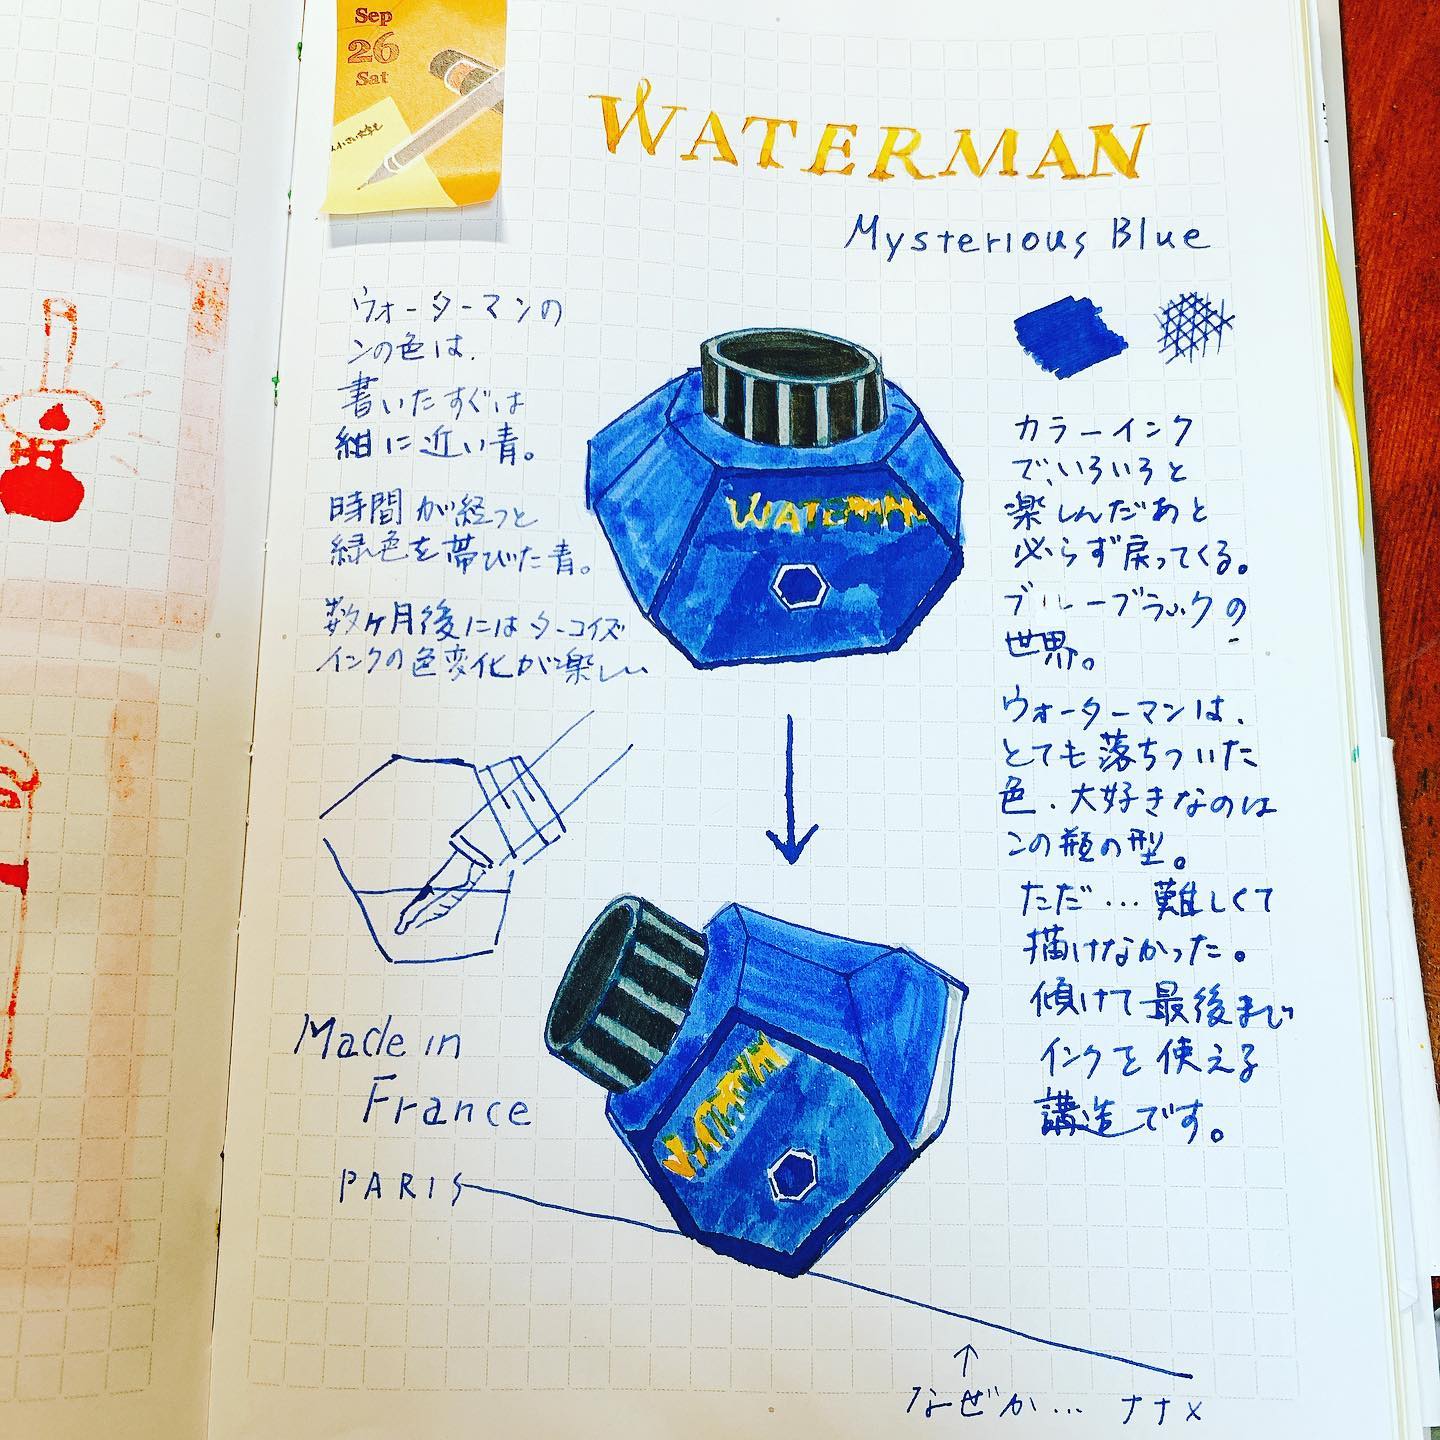 Sep
26
Sat
WATERMAN
Mysterious Blue
ウォーターマンの
ンの色は、
書いたすぐは
紺に近い青。
時間が経つと
緑色を帯びた青。
数ヶ月後にはターコイズ
インクの色変化が楽しい
WATERMAN
カラーインク
でいろいろと
楽しんだあと
必らず戻ってくる。
ブルーブラックの
世界。
ウォーターマンは、
とても落ちついた
色、大好きなのは
この瓶の型。
ただ…難しくて
描けなかった。
傾けて最後まで
インクを使える
講造です。
Made in
France
PARIS
↑
なぜか… ナナメ